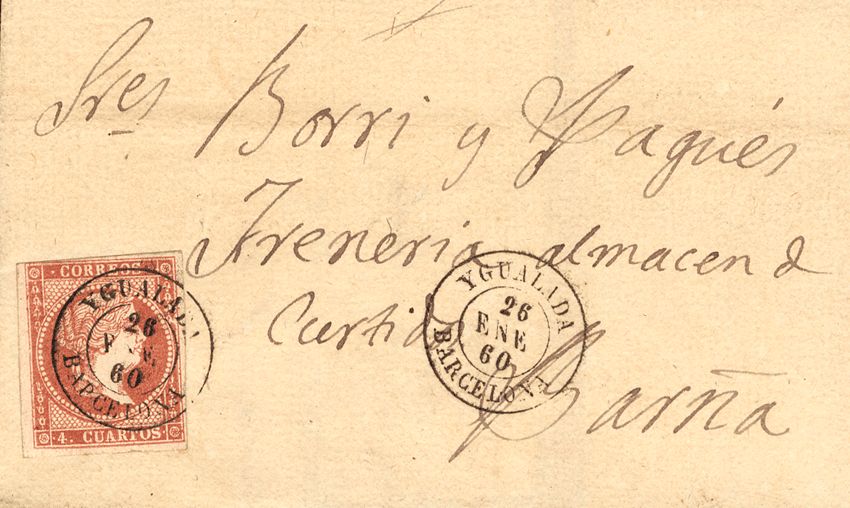 Sres Borri y Pagués
Freneria almacen d
Curtidos
Barña
CORREOS
4. CUARTOS
YGUALADA
26
ENE
60
BARCELONA
YGUALADA
26
ENE
60
BARCELONA